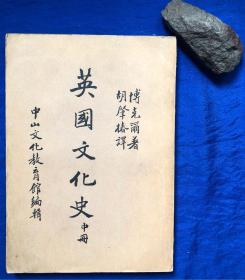 博克爾著
胡肇椿譯
英國文化史 中冊
中山文化教育館編輯